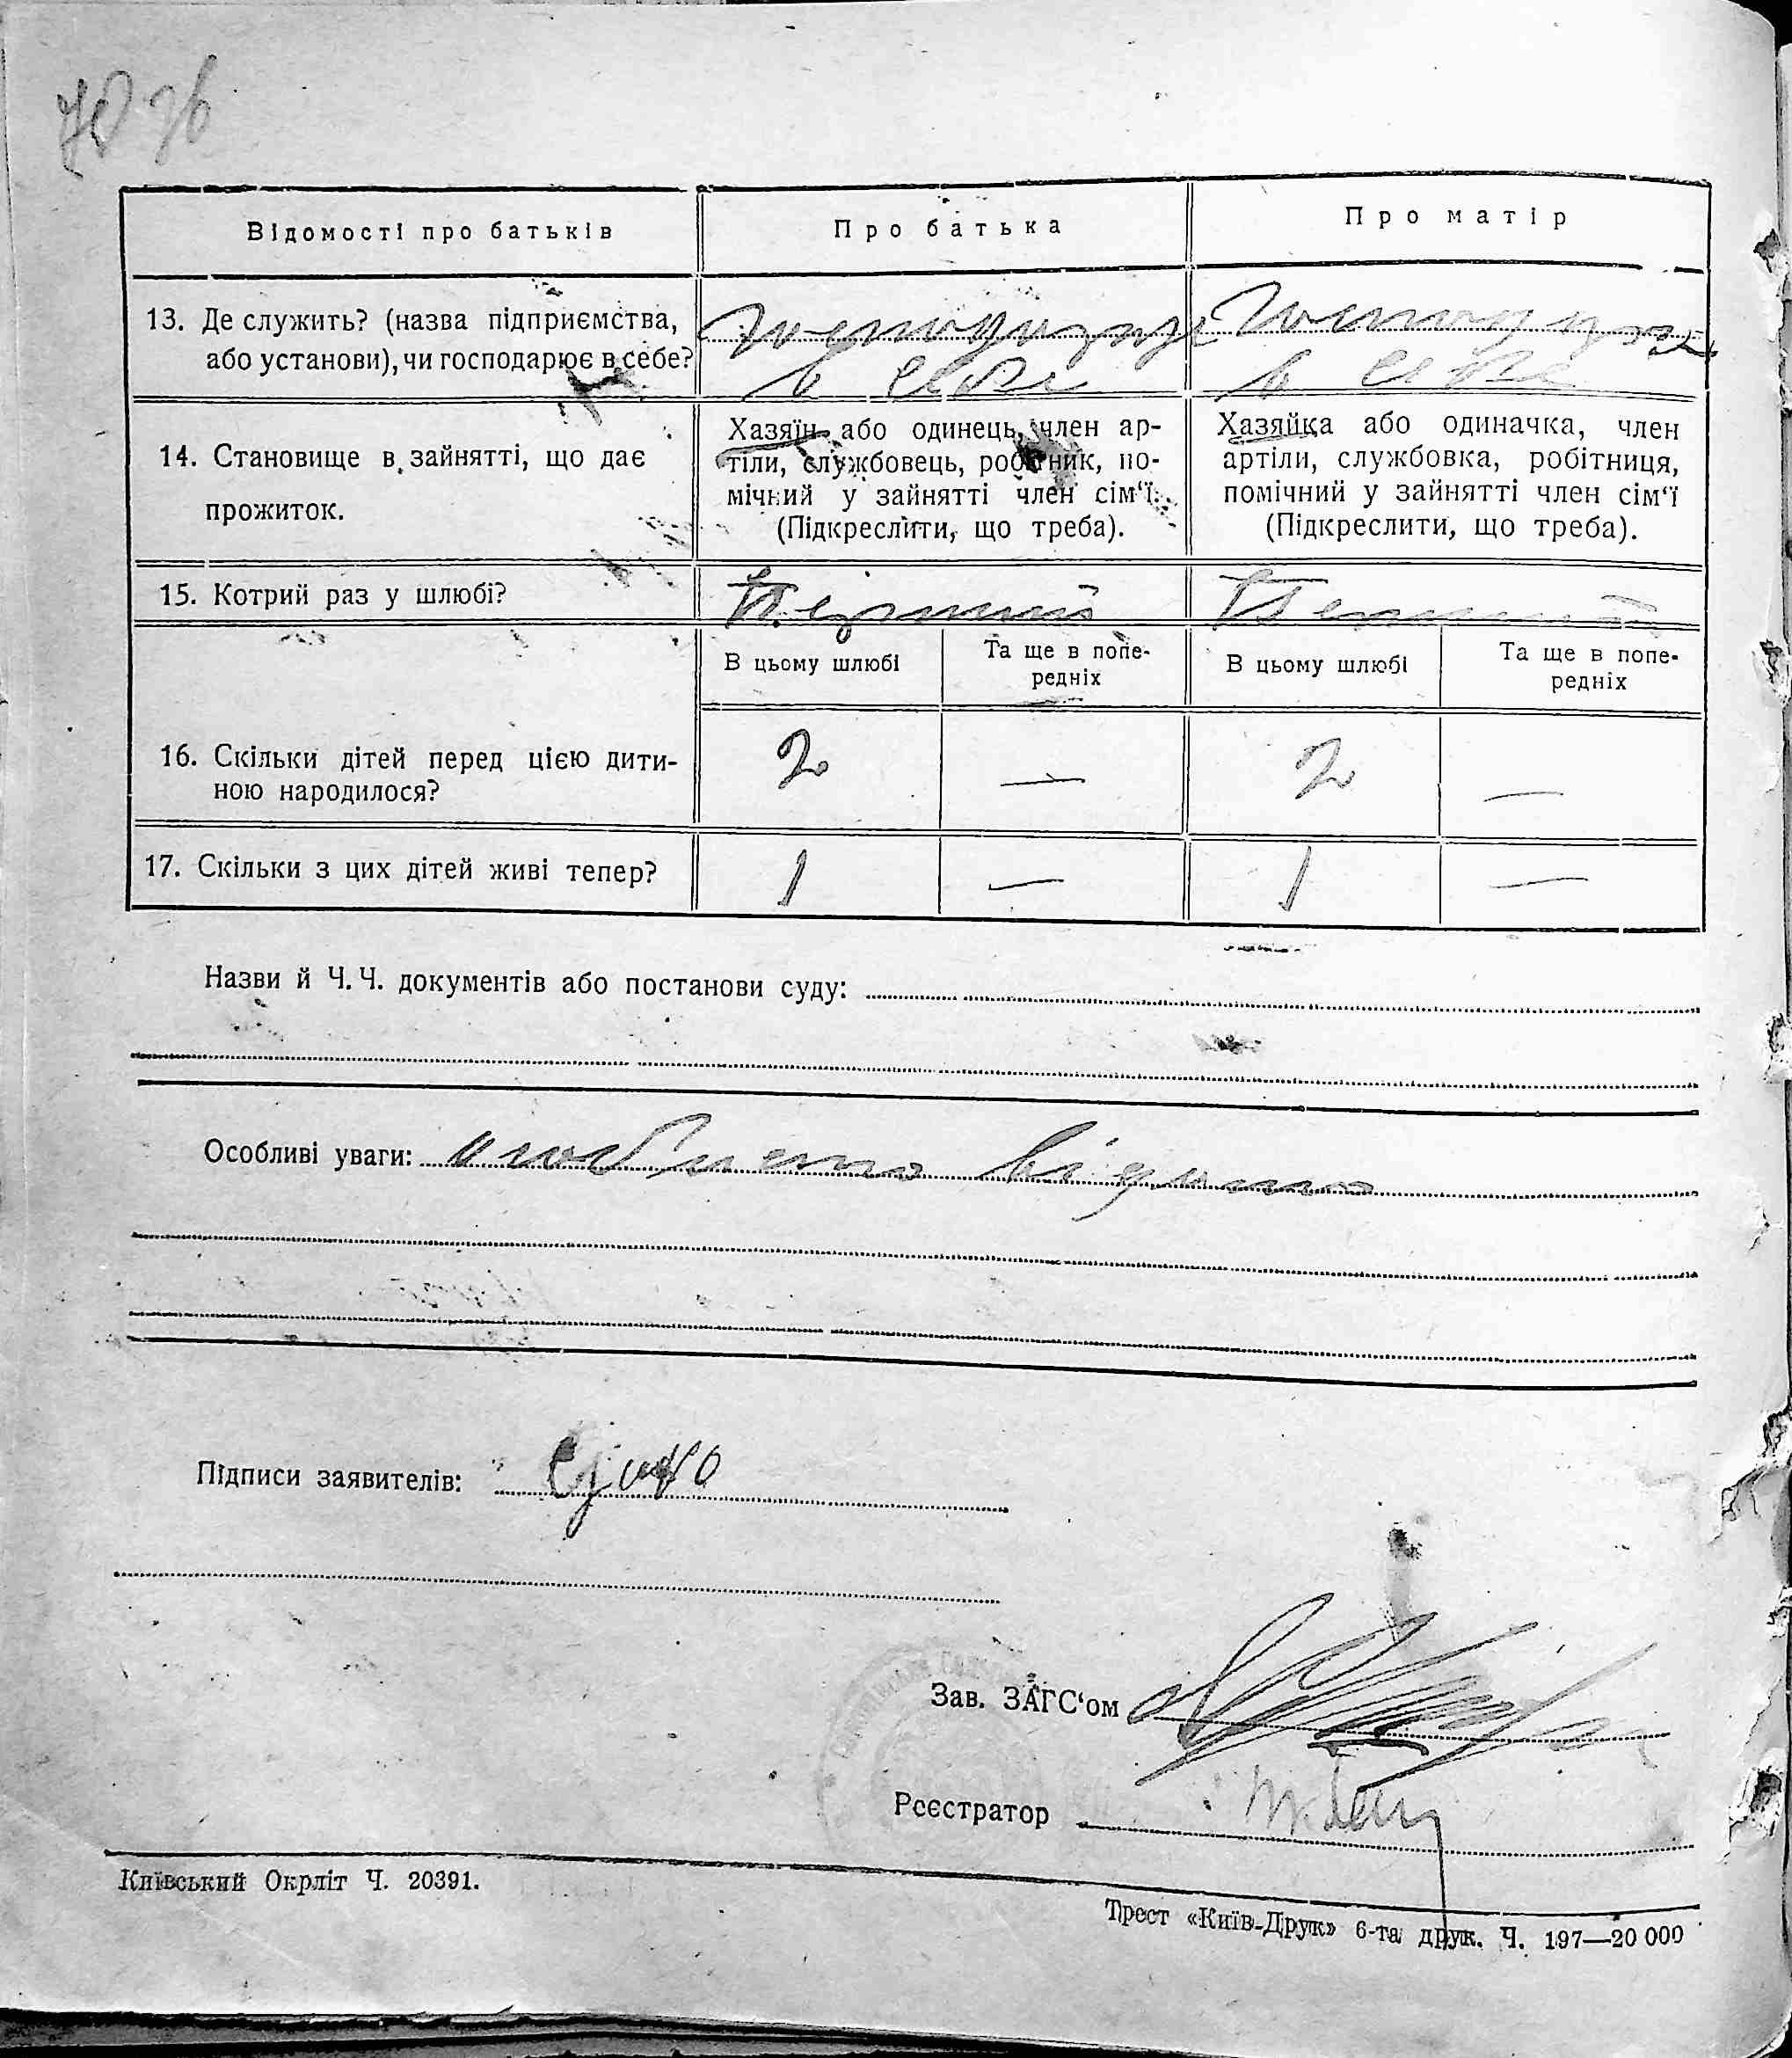 Відомості про батьків
Про батька
Про матір
13. Де служить? (назва підприємства,
або установи), чи господарює в себе?
господарує
в себе
господарує
в себе
14. Становище в зайнятті, що дає
прожиток.
Хазяїн або одинець, член ар-
тіли, службовець, робітник, по-
мічний у зайнятті член сім'ї.
(Підкреслити, що треба).
Хазяйка або одиначка, член
артіли, службовка, робітниця,
помічний у зайнятті член сім'ї
(Підкреслити, що треба).
15. Котрий раз у шлюбі?
Перший
Перший
В цьому шлюбі
Та ще в попе-
редніх
В цьому шлюбі
Та ще в попе-
редніх
16. Скільки дітей перед цією дити-
ною народилося?
2
—
2
—
17. Скільки з цих дітей живі тепер?
1
—
1
—
Назви й Ч.Ч. документів або постанови суду:
Особливі уваги: особисто відомо
Підписи заявителів:
Зав. ЗАГС'ом
Реєстратор
Київський Окрліт Ч. 20391.
Трест «Київ-Друк» 6-та друк. Ч. 197—20 000